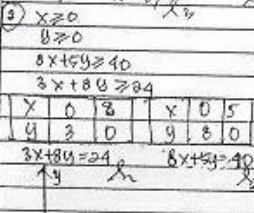 ③ x≥0
y≥0
8x+5y≥40
3x+8y≥24
x 0 8 x 0 5
y 3 0 y 8 0
3x+8y=24 8x+5y=40
y